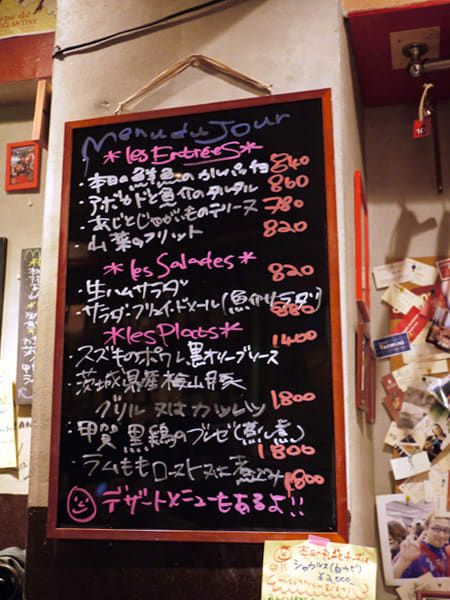 Menu du Jour
*les EntréeS*
・本日の鮮魚のカルパッチョ 840
・アボカドと魚介のタルタル 860
・あじとじゃがいものテリーヌ 780
・山菜のフリット 820
*les Salades*
・生ハムサラダ 820
・サラダ・フリュイ・ド・メール(魚介サラダ) 980
*les Plats*
・スズキのポワレ黒オリーブソース 1400
・茨城県産梅山豚
グリル 又は カツレツ 1800
・甲賀 黒鶏のブレゼ(蒸し煮) 1800
・ラムももロースト又は煮込み 1800
デザートメニューもあるよ!!
本日の
シャウルス(白カビ)